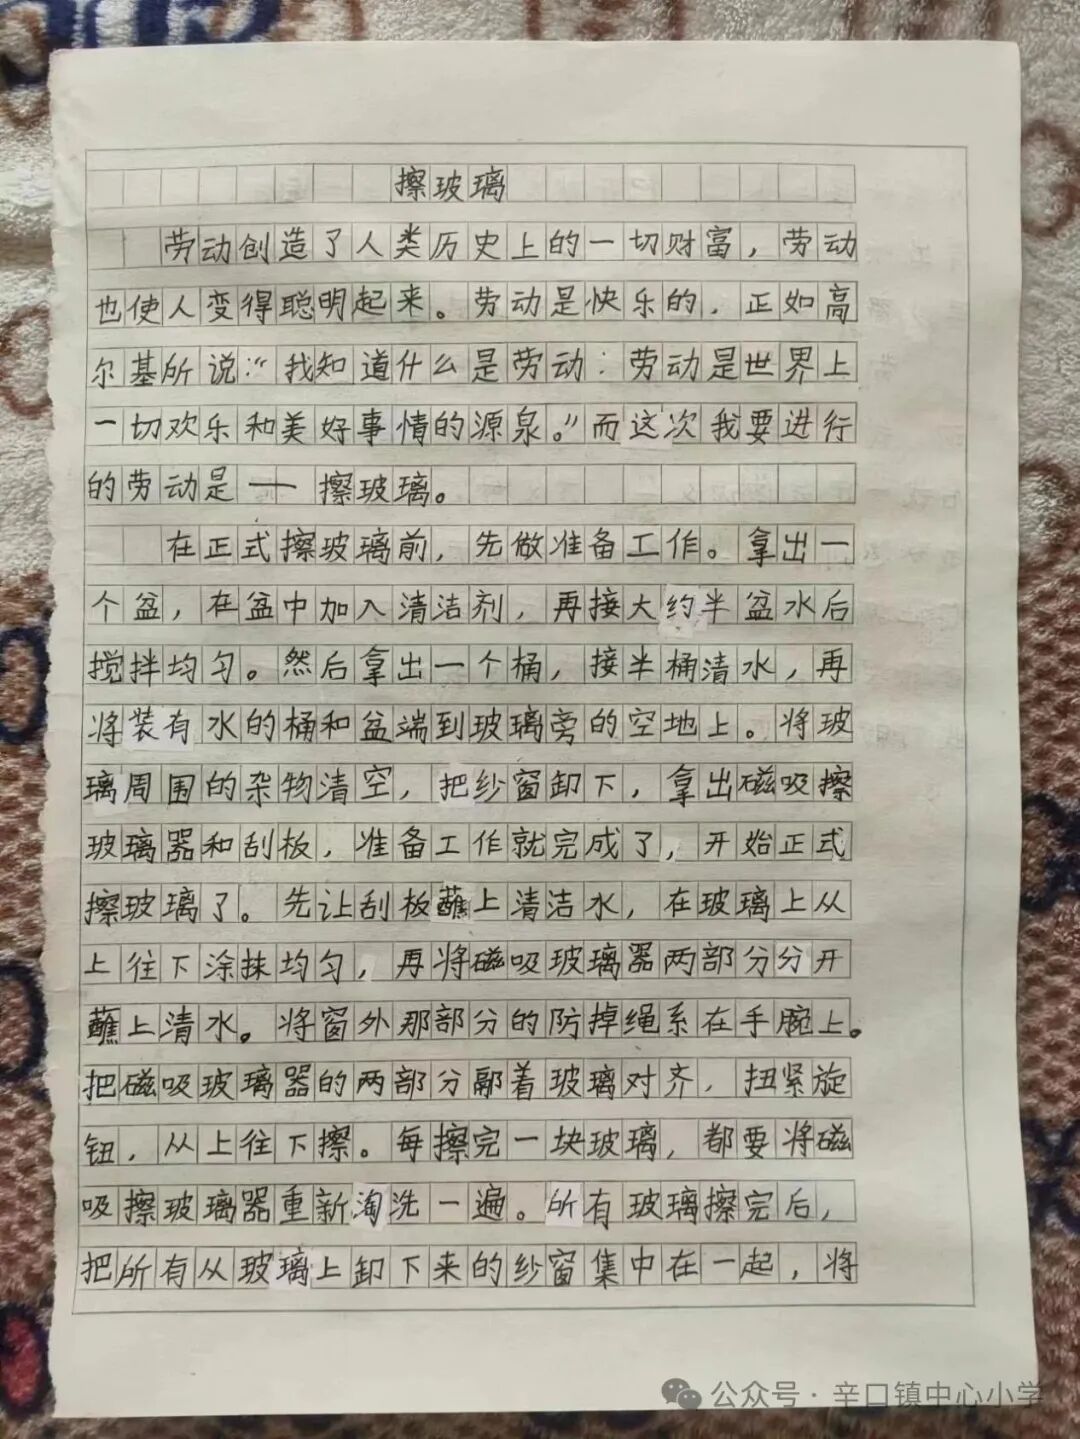 擦玻璃
劳动创造了人类历史上的一切财富，劳动
也使人变得聪明起来。劳动是快乐的，正如高
尔基所说：“我知道什么是劳动：劳动是世界上
一切欢乐和美好事情的源泉。”而这次我要进行
的劳动是——擦玻璃。
在正式擦玻璃前，先做准备工作。拿出一
个盆，在盆中加入清洁剂，再接大约半盆水后
搅拌均匀。然后拿出一个桶，接半桶清水，再
将装有水的桶和盆端到玻璃旁的空地上。将玻
璃周围的杂物清空，把纱窗卸下，拿出磁吸擦
玻璃器和刮板，准备工作就完成了，开始正式
擦玻璃了。先让刮板蘸上清洁水，在玻璃上从
上往下涂抹均匀，再将磁吸玻璃器两部分分开
蘸上清水。将窗外那部分的防掉绳系在手腕上。
把磁吸玻璃器的两部分着玻璃对齐，扭紧旋
钮，从上往下擦。每擦完一块玻璃，都要将磁
吸擦玻璃器重新淘洗一遍。所有玻璃擦完后，
把所有从玻璃上卸下来的纱窗集中在一起，将
公众号·辛口镇中心小学